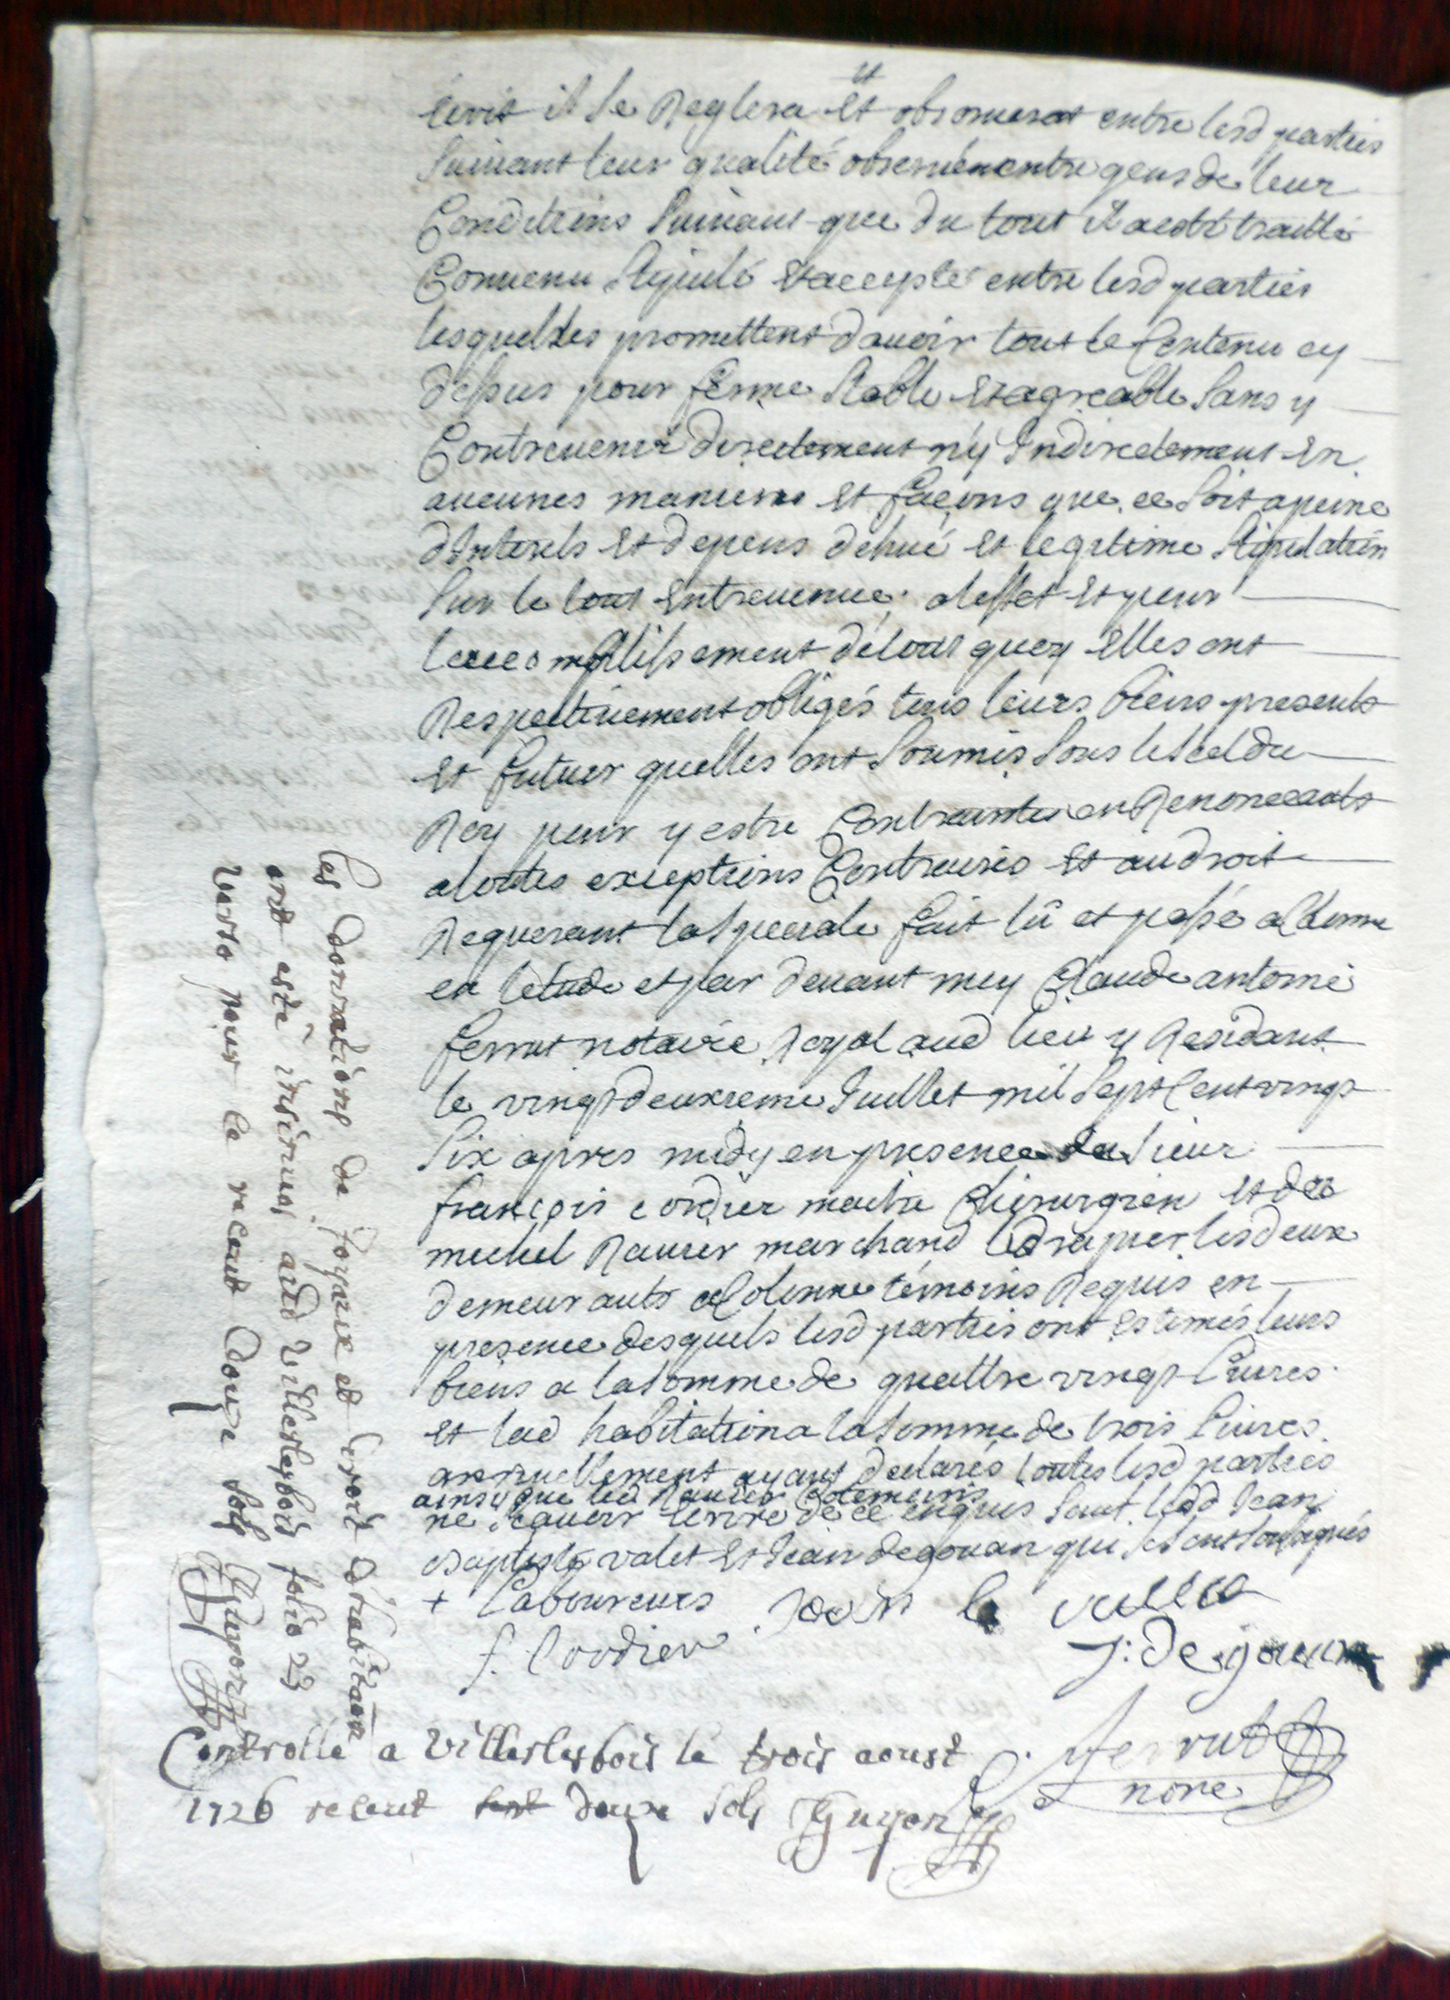 et
écrit il se Reglera et observerat entre lesd parties
suivant leur qualité observé entre gens de leur
Conditions suivant que du tout il a esté traitté
Convenu stipulé et accepté entre lesd parties
lesquelles promettent davoir tout le Contenu cy
dessus pour ferme stable et agreable sans y
Contrevenir directement n'y Indirectement En
aucunes manieres et façons que ce soit a peine
dInterels et depens dehue et legitime stipulation
sur le tout entrevenue a leffet et pour
laccomplissement de tout quoy Elles ont
Respectivement obligés tous leurs biens presents
et futur quelles ont soumis sous le scel du
Roy pour y estre Contraintes en Renonceants
a toutes exceptions Contraires et au droit
Requerant la speciale fait lû et passé a Colonne
en letude et par devant moy Claude antoine
ferrut notaire Royal aud lieu y Residant
le vingt deuxieme Juillet mil sept Cent vingt
six apres midy en presence du sieur
françois cordier maitre Chirurgien et de
michel Raurer marchand drapier lesdeux
demeurants a Colonne témoins Requis en
presence desquels lesd parties ont estimés leurs
biens a la somme de quattre vingt Livres
et lad habitation a la somme de trois Livres
annuellement ayant declarés toutes lesd parties
ainsy que led Raurer temoins
ne scavoir Ecrire de ce enquis sauf led Jean
Baptiste valet et Jean degouan qui se sont soussignés
+ Laboureurs Jean valet
f. Cordier J: degouan
ferrut
nore
Controllé a Villerlesbois le trois aoust
1726 receut deux sols Guyon
les donnations de joyaux et droit d'habitaon
ont esté insinués aud Villerlesbois folio 23
verso pour ce receut douze sols Guyon